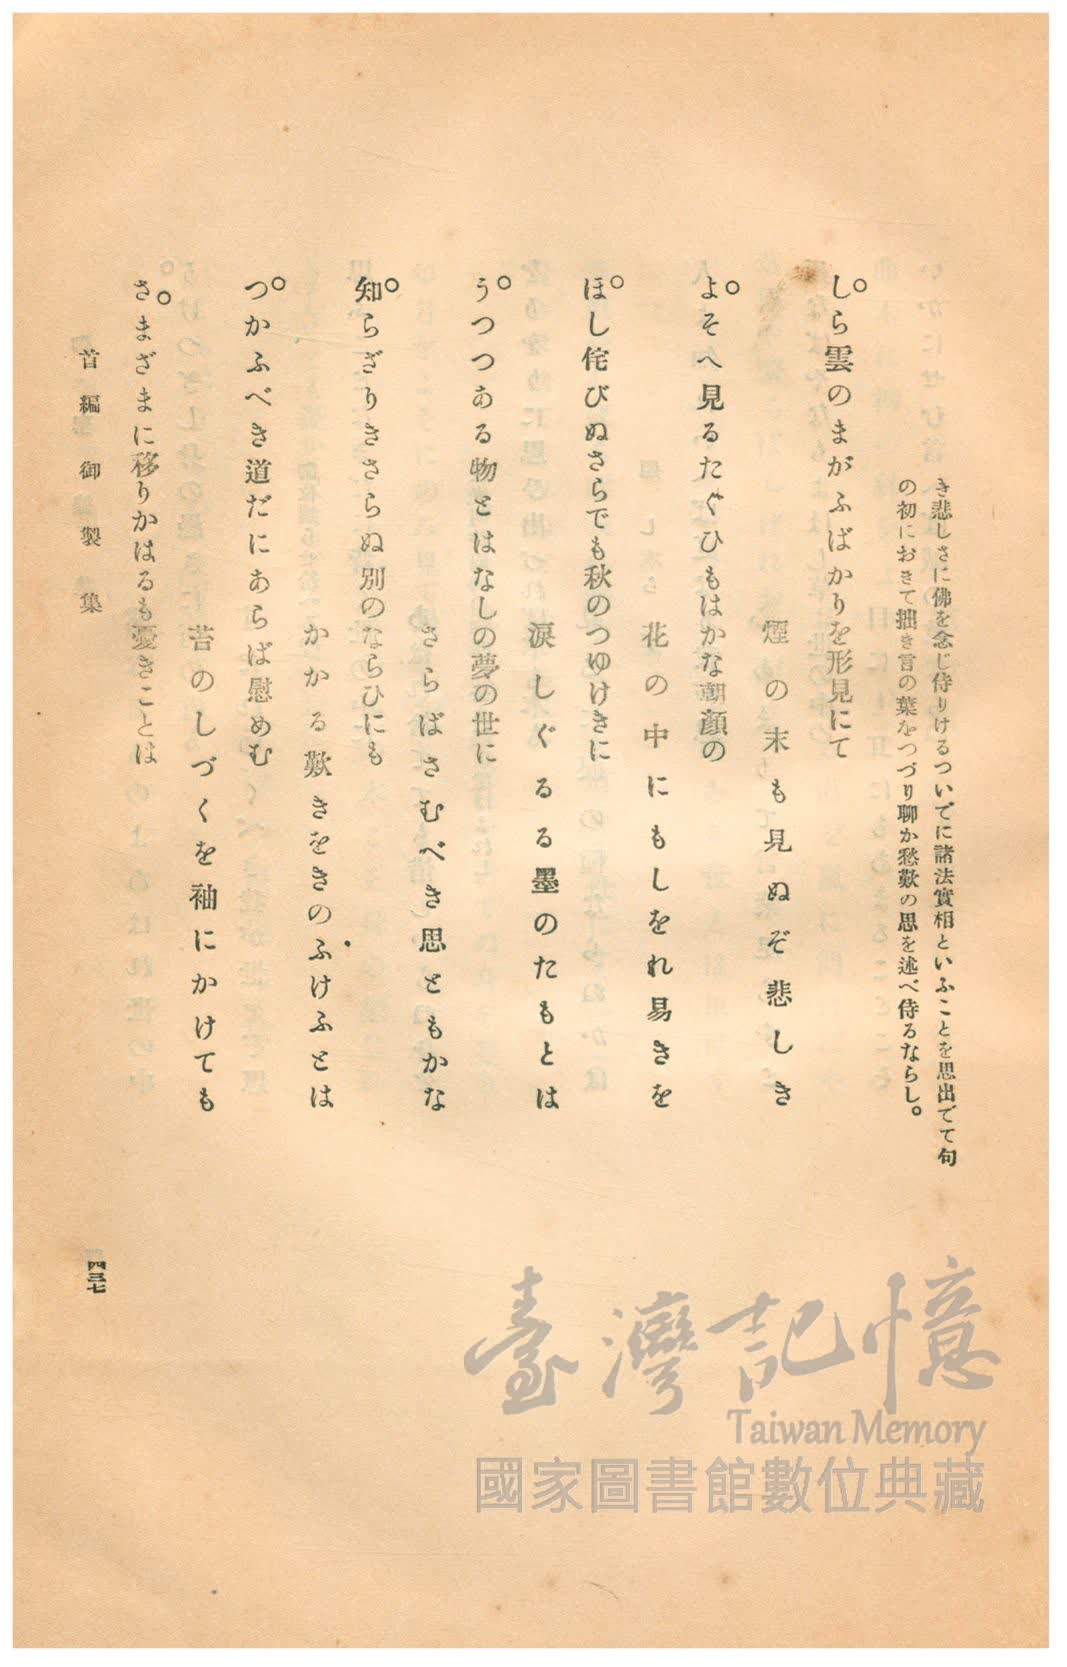 き悲しさに佛を念じ侍りけるついでに諸法實相といふことを思出でて句
の初におきて拙き言の葉をつづり聊か愁歎の思を述べ侍るならし。
しら雲のまがふばかりを形見にて
煙の末も見ぬぞ悲しき
よそへ見るたぐひもはかな朝顔の
花の中にもしをれ易きを
ほし侘びぬさらでも秋のつゆけきに
涙しぐるる墨のたもとは
うつつある物とはなしの夢の世に
さらばさむべき思ともかな
知らざりきさらぬ別のならひにも
かかる歎きをきのふけふとは
つかふべき道だにあらば慰めむ
苔のしづくを袖にかけても
さまざまに移りかはるも憂きことは
首編 御製集
四三七
臺灣記憶
Taiwan Memory
國家圖書館數位典藏